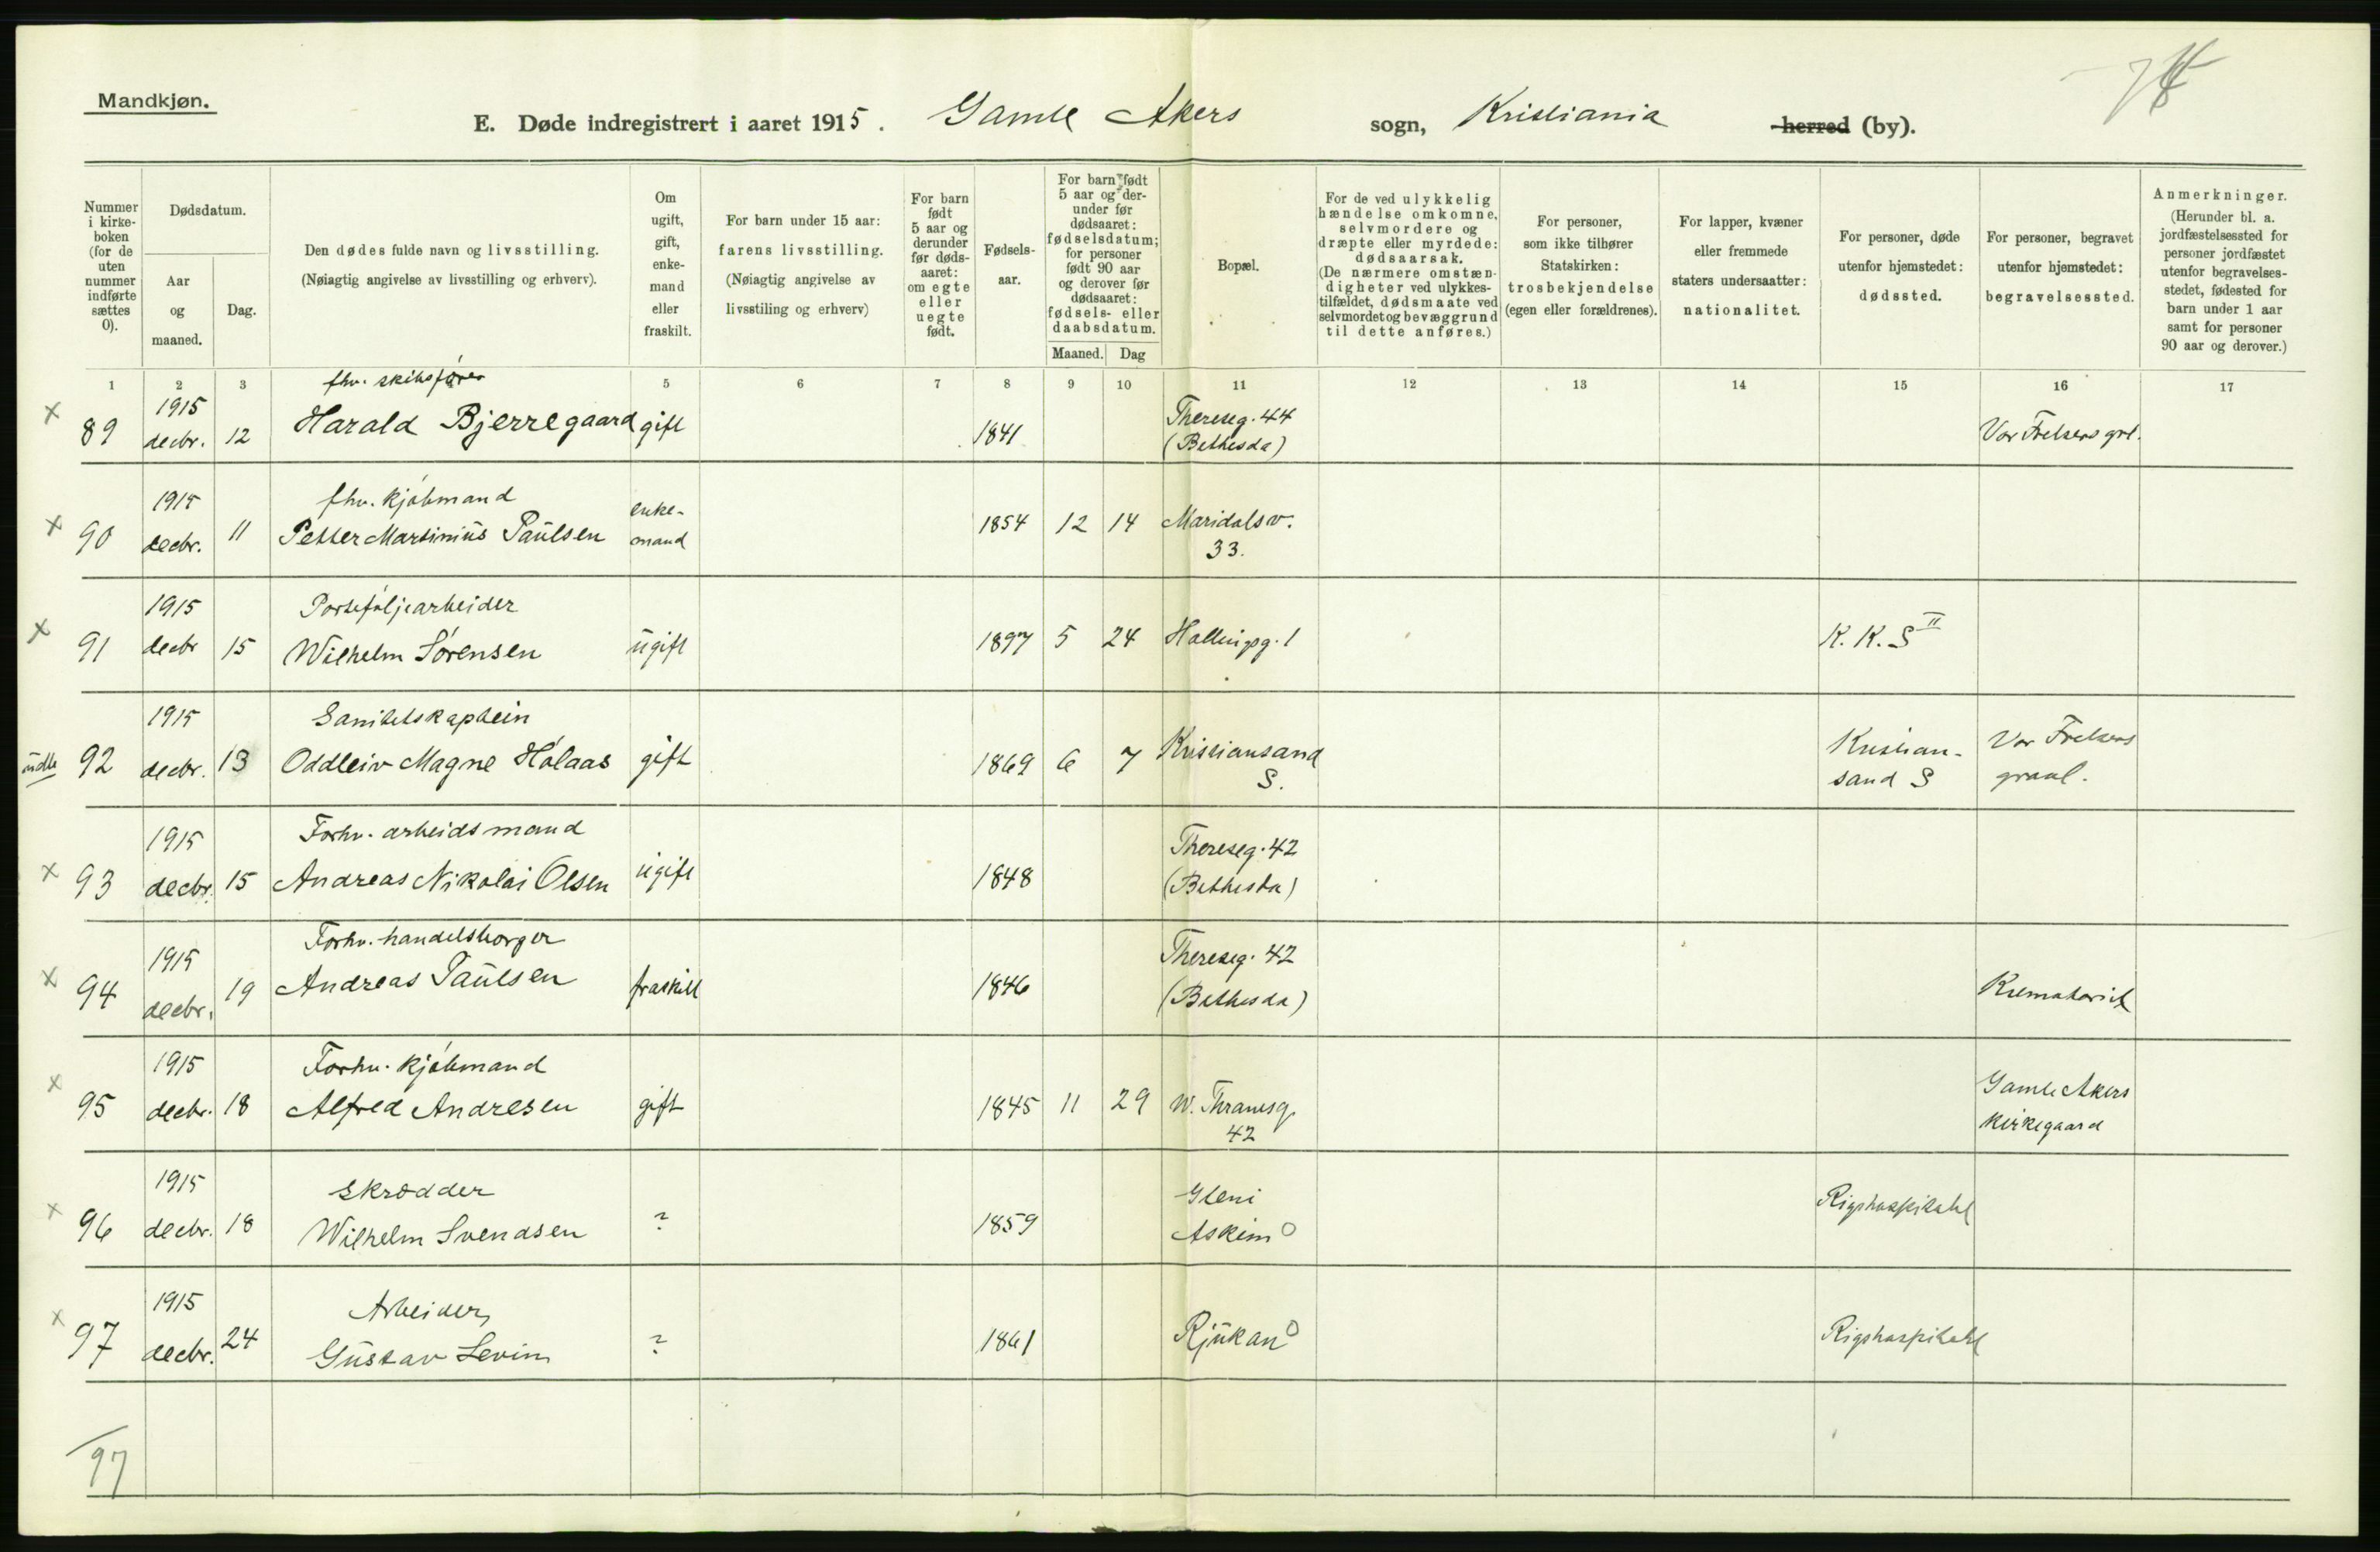 Mandkjøn.
E. Døde indregistrert i aaret 1915. Gamle Akers sogn, Kristiania herred (by).
Nummer i kirkeboken (for de uten nummer indførte sættes 0).
Dødsdatum.
Aar og maaned.
Dag.
Den dødes fulde navn og livsstilling.
(Nøiagtig angivelse av livsstilling og erhverv).
Om ugift, gift, enkemand eller fraskilt.
For barn under 15 aar:
farens livsstilling.
(Nøiagtig angivelse av
livsstiling og erhverv)
For barn født 5 aar og derunder før dødsaaret: om egte eller uegte født.
Fødselsaar.
For barn født 5 aar og derunder før dødsaaret: fødselsdatum; for personer født 90 aar og derover før dødsaaret: fødsels- eller daabsdatum.
Maaned. Dag
Bopæl.
For de ved ulykkelig hændelse omkomne, selvmordere og dræpte eller myrdede: dødsaarsak. (De nærmere omstændigheter ved ulykkestilfældet, dødsmaate ved selvmordet og bevæggrund til dette anføres.)
For personer, som ikke tilhører Statskirken: trosbekjendelse (egen eller forældrenes).
For lapper, kvæner eller fremmede staters undersaatter: nationalitet.
For personer, døde utenfor hjemstedet: dødssted.
For personer, begravet utenfor hjemstedet: begravelsessted.
Anmerkninger.
(Herunder bl. a. jordfæstelsessted for personer jordfæstet utenfor begravelsesstedet, fødested for barn under 1 aar samt for personer 90 aar og derover.)
1 2 3 5 6 7 8 9 10 11 12 13 14 15 16 17
fhv. skibsfører
x 89 1915 decbr. 12 Harald Bjerregaard gift 1841 Thereseg. 44 (Bethesda) Vor Frelsers grl.
fhv. kjøbmand
x 90 1915 decbr. 11 Petter Martinius Paulsen enkemand 1854 12 14 Maridalsv. 33.
Porteføljearbeider
x 91 1915 decbr 15 Wilhelm Sørensen ugift 1897 5 24 Hallingsg. 1 K. K. S II
Sanitetskaptein
92 1915 decbr. 13 Oddleiv Magne Hølaas gift 1869 6 7 Kristiansand S. Kristiansand S Vor Frelsers gravl.
Forhv. arbeidsmand
x 93 1915 decbr. 15 Andreas Nikolai Olsen ugift 1848 Thereseg. 42 (Bethesda)
Forhv. handelsborger
x 94 1915 decbr. 19 Andreas Paulsen fraskilt 1846 Thereseg. 42 (Bethesda) Krematoriet
Forhv. kjøbmand
x 95 1915 decbr. 18 Alfred Andresen gift 1845 11 29 W. Thranesg. 42 Gamle Akers kirkegaard
Skrædder
x 96 1915 decbr. 18 Wilhelm Svendsen ? 1859 Askim Rigshospitalet
Arbeider
x 97 1915 decbr. 24 Gustav Levin ? 1861 Rjukan Rigshospitalet
97